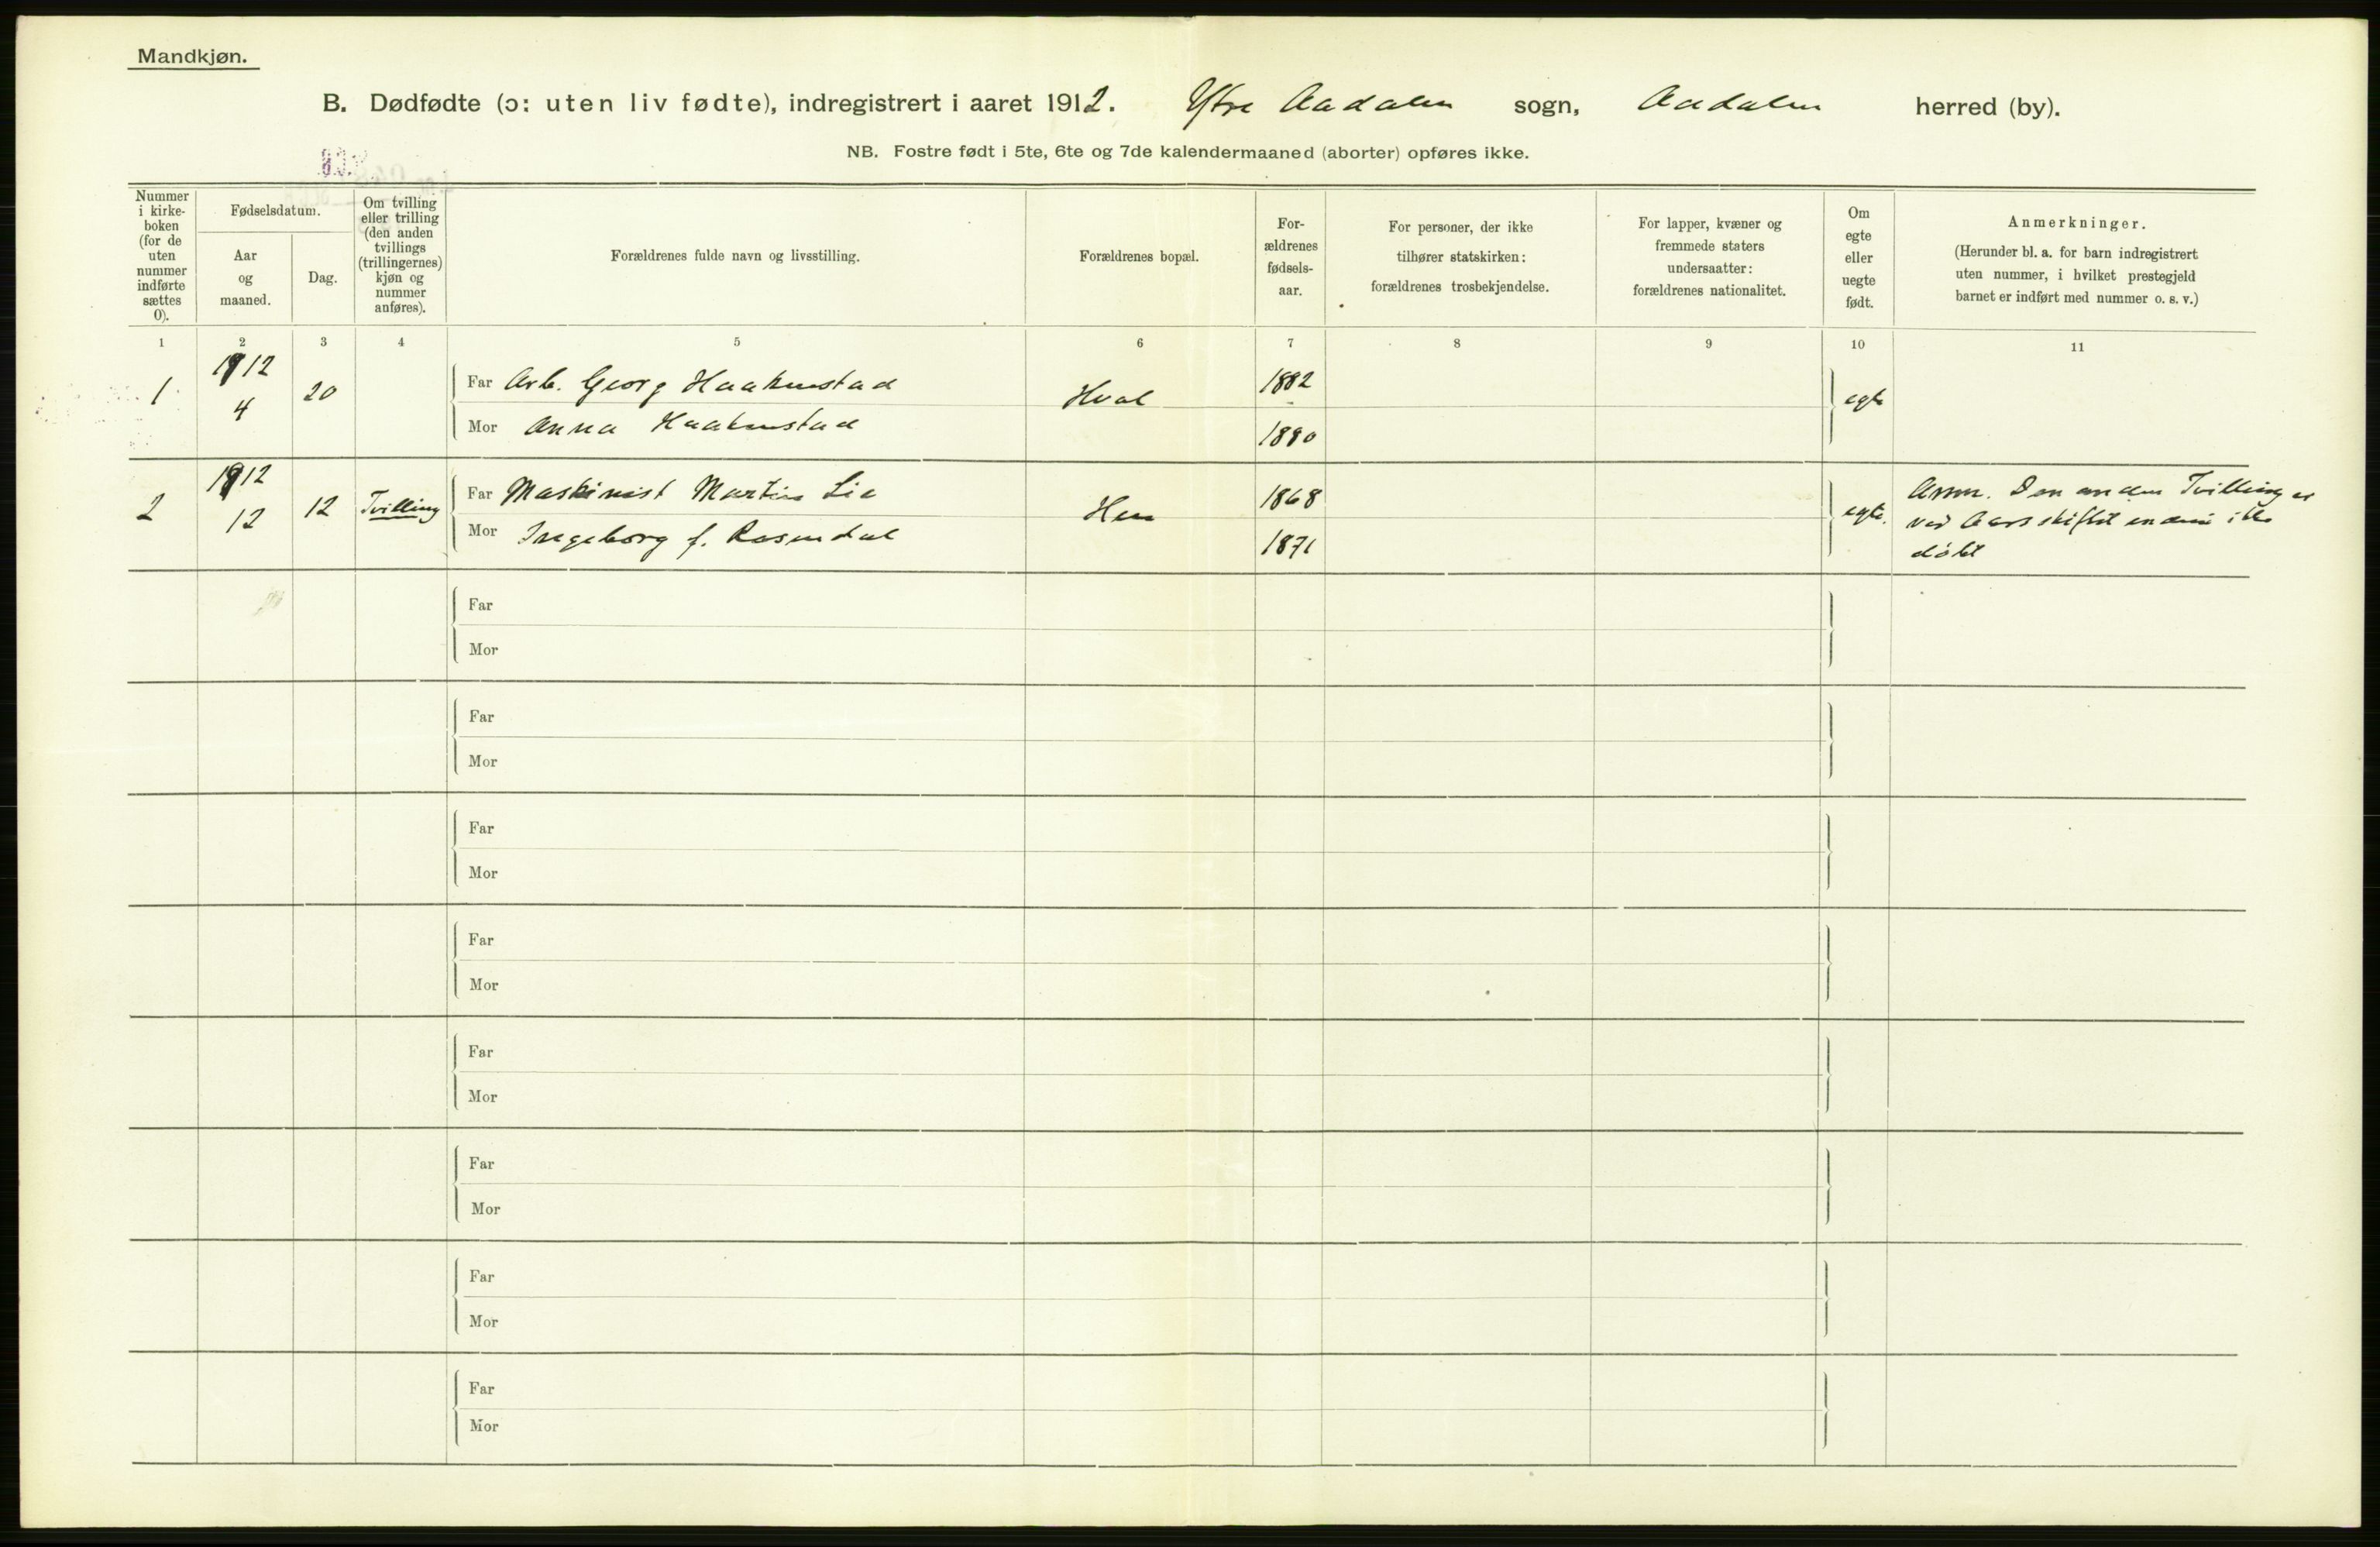 Mandkjøn.
B. Dødfødte (ɔ: uten liv fødte), indregistrert i aaret 1912. Ytre Aadalen sogn, Aadalen herred (by).
NB. Fostre født i 5te, 6te og 7de kalendermaaned (aborter) opføres ikke.
Nummer
i kirke-
boken
(for de
uten
nummer
indførte
sættes
0).
Fødselsdatum.
Aar
og
maaned.
Dag.
Om tvilling
eller trilling
(den anden
tvillings
(trillingernes)
kjøn og
nummer
anføres).
Forældrenes fulde navn og livsstilling.
Forældrenes bopæl.
For-
ældrenes
fødsels-
aar.
For personer, der ikke
tilhører statskirken:
forældrenes trosbekjendelse.
For lapper, kvæner og
fremmede staters
undersaatter:
forældrenes nationalitet.
Om
egte
eller
uegte
født.
Anmerkninger.
(Herunder bl. a. for barn indregistrert
uten nummer, i hvilket prestegjeld
barnet er indført med nummer o. s. v.)
1 2 3 4 5 6 7 8 9 10 11
1 1912 4 20 Far Arb. Georg Haakenstad Hval 1882 egte
Mor Anna Haakenstad 1890
2 1912 12 12 Tvilling Far Maskinist Martin Lie Hen 1868 egte.
Mor Ingeborg f. Rosendal 1871
Anm. Den anden Tvilling er
ved Aarsskiftet endnu ikke
døbt
Far
Mor
Far
Mor
Far
Mor
Far
Mor
Far
Mor
Far
Mor
Far
Mor
Far
Mor